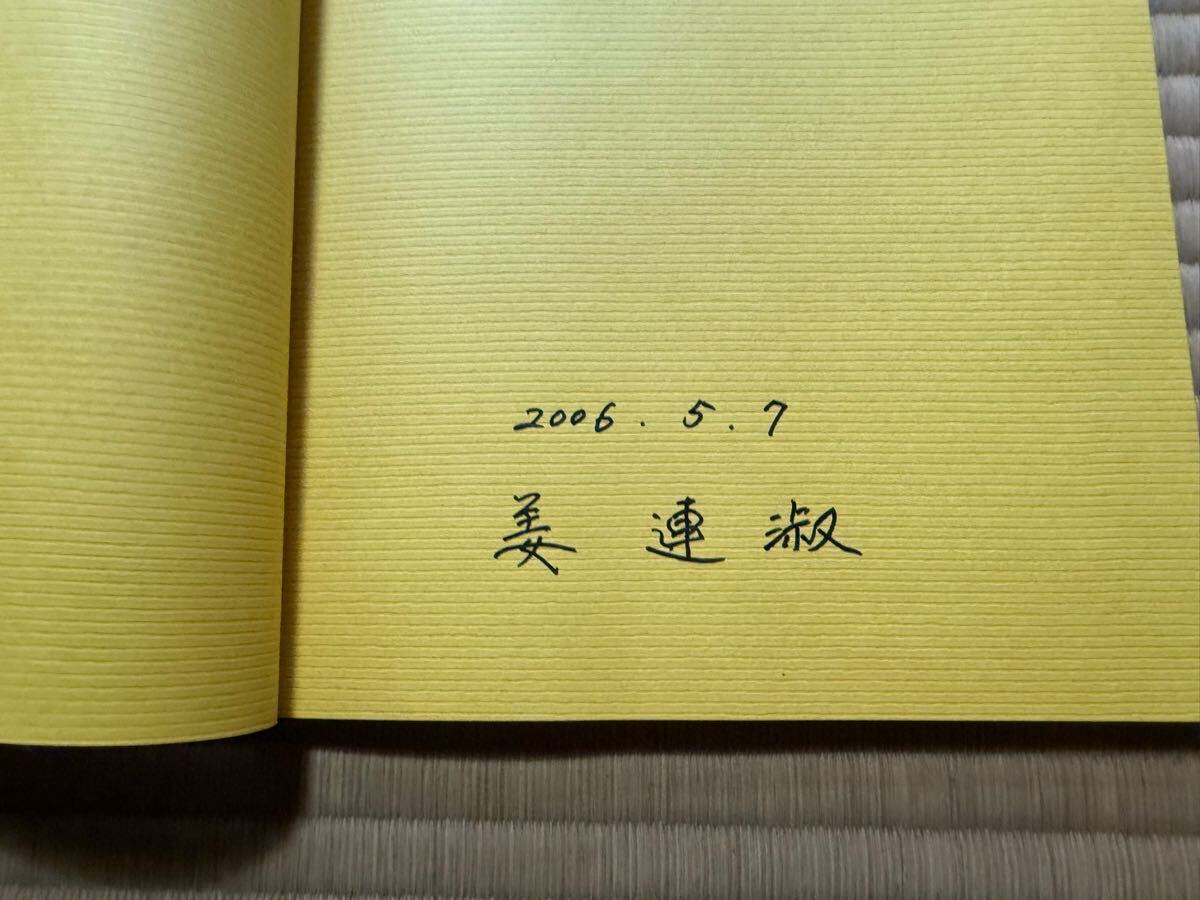 2006. 5. 7
姜 連淑